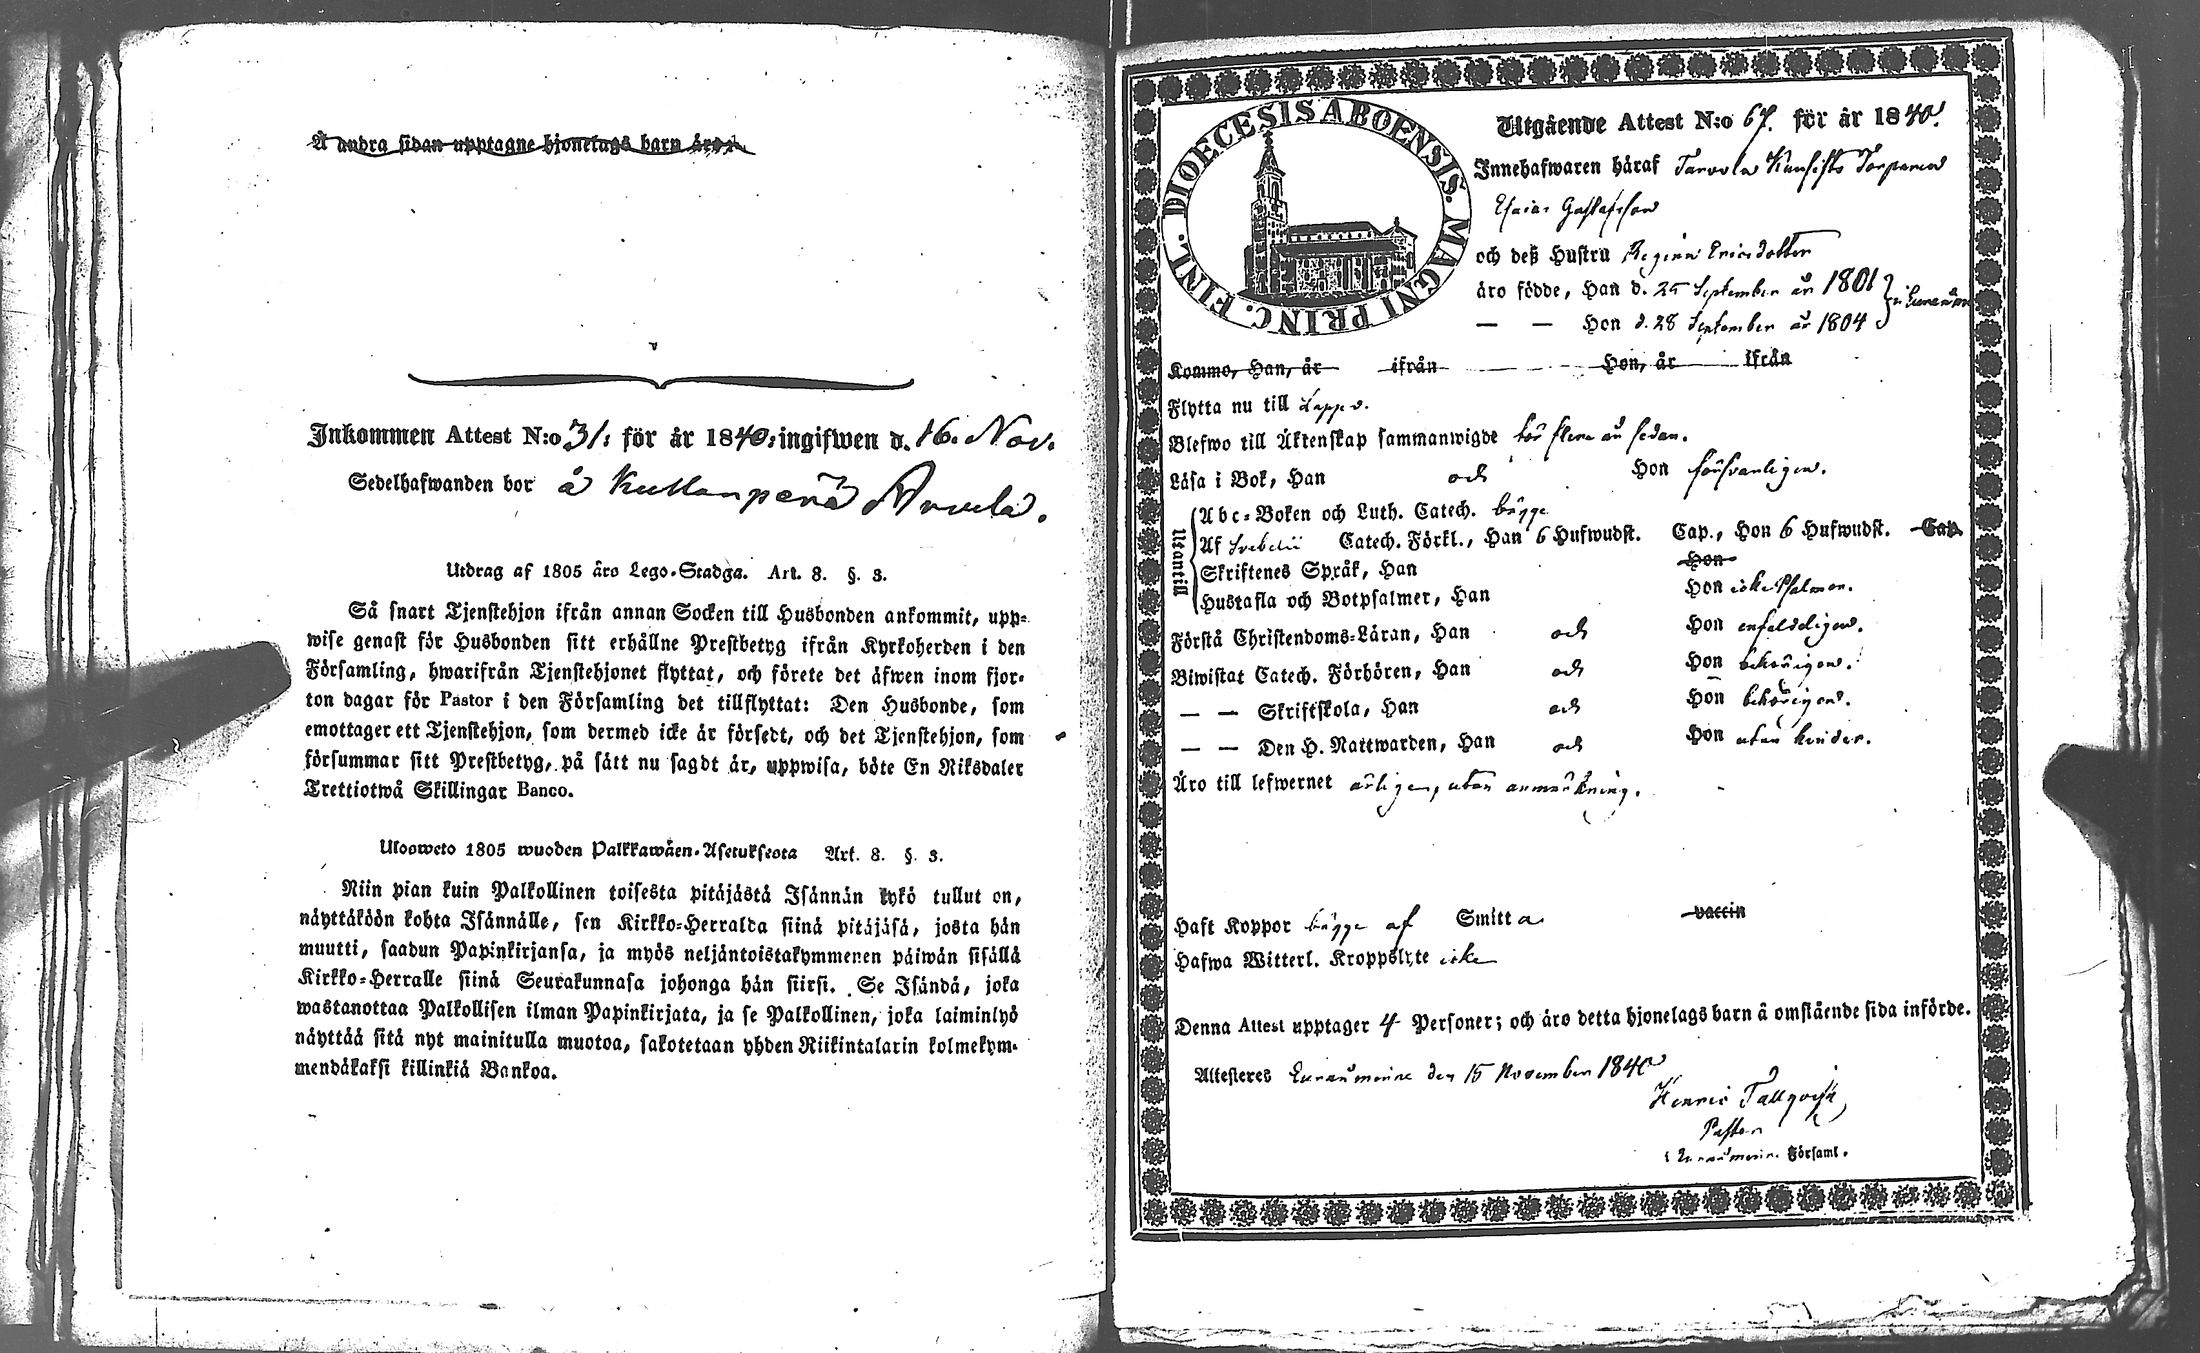 Å andra sidan upptagne hjonelags barn äro:
Inkommen Attest N:o 31: för år 1840: ingifwen d. 16. Nov.
Sedelhafwanden bor å Kullanperä
Utdrag af 1805 års Lego-Stadga. Art. 8. §. 3.
Så snart Tjenstehjon ifrån annan Socken till Husbonden ankommit, upp-
wise genast för Husbonden sitt erhållne Prestbetyg ifrån Kyrkoherden i den
Församling, hwarifrån Tjenstehjonet flyttat, och förete det äfwen inom fjor-
ton dagar för Pastor i den Församling det tillflyttat: Den Husbonde, som
emottager ett Tjenstehjon, som dermed icke är försedt, och det Tjenstehjon, som
försummar sitt Prestbetyg, på sätt nu sagdt är, uppwisa, böte En Riksdaler
Trettiotwå Skillingar Banco.
Uloosweto 1805 wuoden Palkkawäen-Asetuksesta Art. 8. §. 3.
Niin pian kuin Palkollinen toisesta pitäjästä Isännän tykö tullut on,
näyttäköön kohta Isännälle, sen Kirkko-Herralda siinä pitäjäsä, josta hän
muutti, saadun Papinkirjansa, ja myös neljäntoistakymmenen päiwän sisällä
Kirkko-Herralle siinä Seurakunnasa johonga hän siirsi. Se Isändä, joka
wastanottaa Palkollisen ilman Papinkirjata, ja se Palkollinen, joka laiminlyö
näyttää sitä nyt mainitulla muotoa, sakotetaan yhden Riikintalarin kolmekym-
mendäkaksi killinkiä Bankoa.
DIOECESIS ABOENSIS. MAGNI PRINC. FINL.
Utgående Attest N:o 67. för år 1840.
Innehafwaren häraf Torparen
Esaias Gustafsson
och deß Hustru Regina Ericsdotter
äro födde, Han d. 25 September år 1801
— — Hon d. 28 September år 1804
Kommo, Han, år ifrån Hon, år ifrån
Flytta nu till Lappo.
Blefwo till Äktenskap sammanwigde för flera år sedan.
Läsa i Bok, Han och Hon försvarligen.
Utantill
Abc-Boken och Luth. Catech. bägge
Af Svebelii Catech. Förkl., Han 6 Hufwudst. Cap., Hon 6 Hufwudst. Cap.
Skriftenes Språk, Han Hon
Hustafla och Botpsalmer, Han Hon icke Psalmer.
Förstå Christendoms-Läran, Han och Hon enfaldeligen.
Biwistat Catech. Förhören, Han och Hon behörigen.
— — Skriftskola, Han och Hon behörigen.
— — Den H. Nattwarden, Han och Hon utan hinder.
Äro till lefwernet ärlige, utan anmärkning.
Haft Koppor bägge af Smitta vaccin
Hafwa Witterl. Kroppslyte icke
Denna Attest upptager 4 Personer; och äro detta hjonelags barn å omstående sida införde.
Attesteres Euraåminne den 15 November 1840
Henric Tallqvist
Pastor
i Euraåminne Församl.